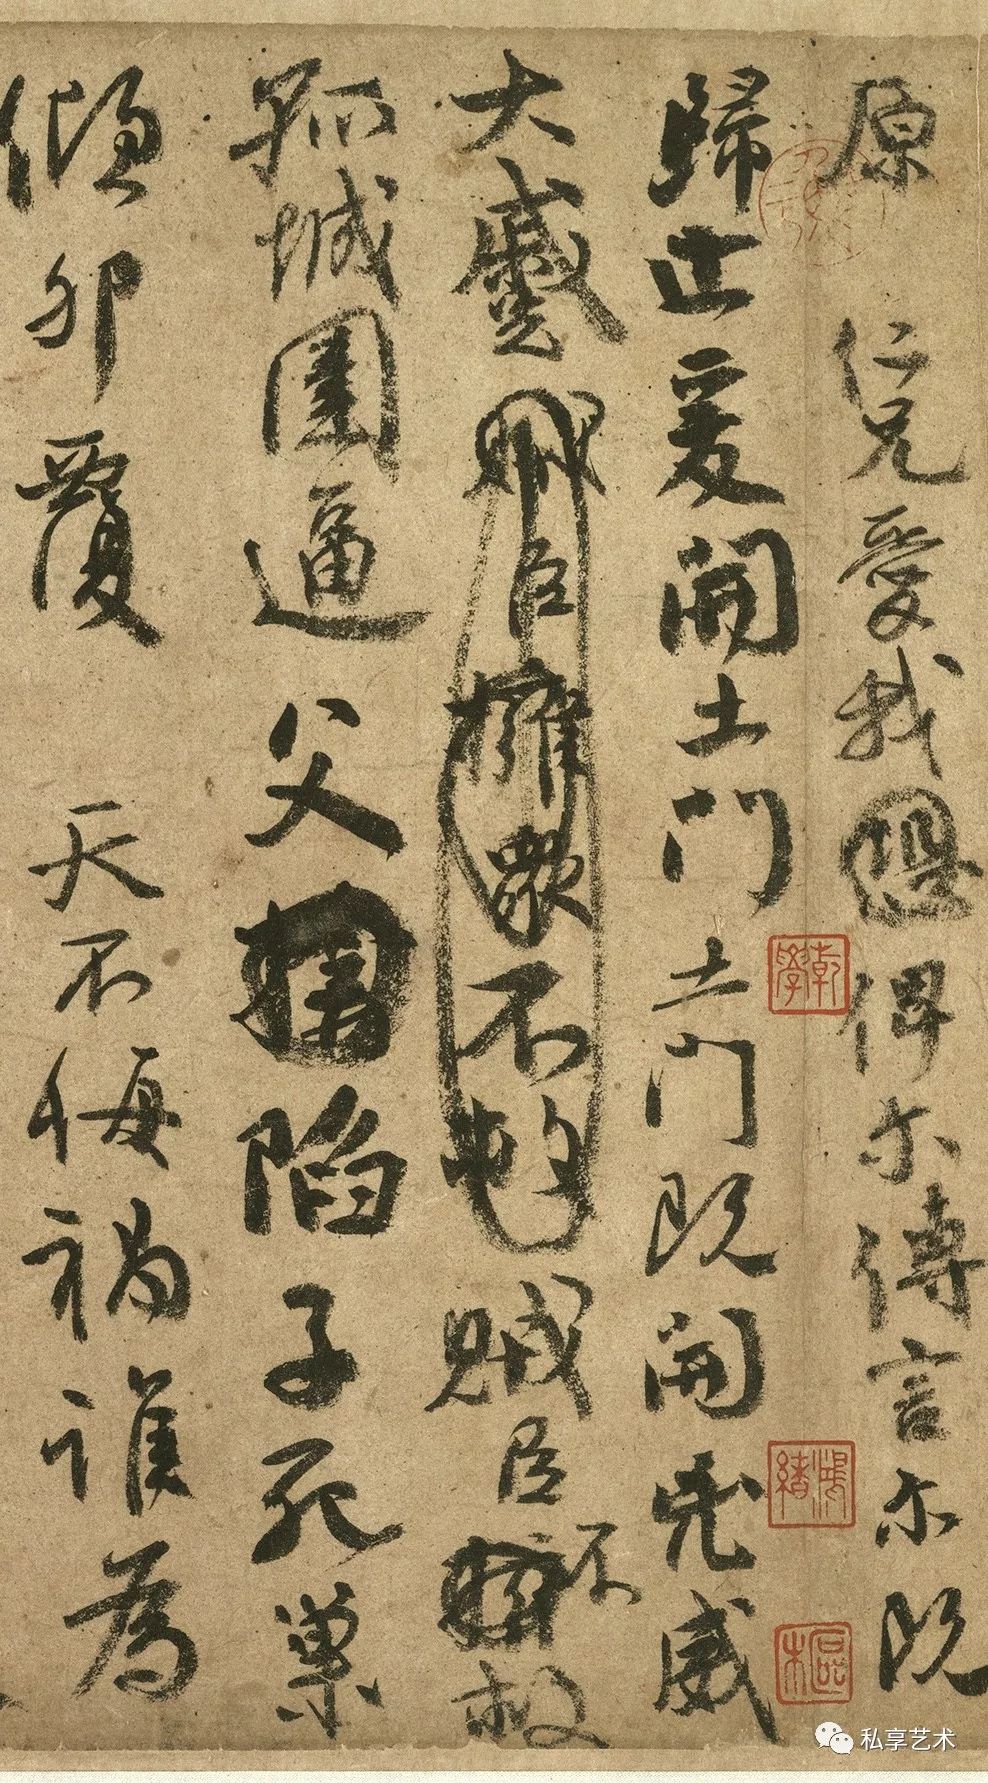 原 仁兄愛我俾尔傳言尔既
歸止爰開土門土門既開凶威
大蹙賊臣擁衆不救賊臣不救
孤城圍逼父陷子死巢
傾卵覆 天不悔禍誰為
乾學
鴻緒
私享艺术